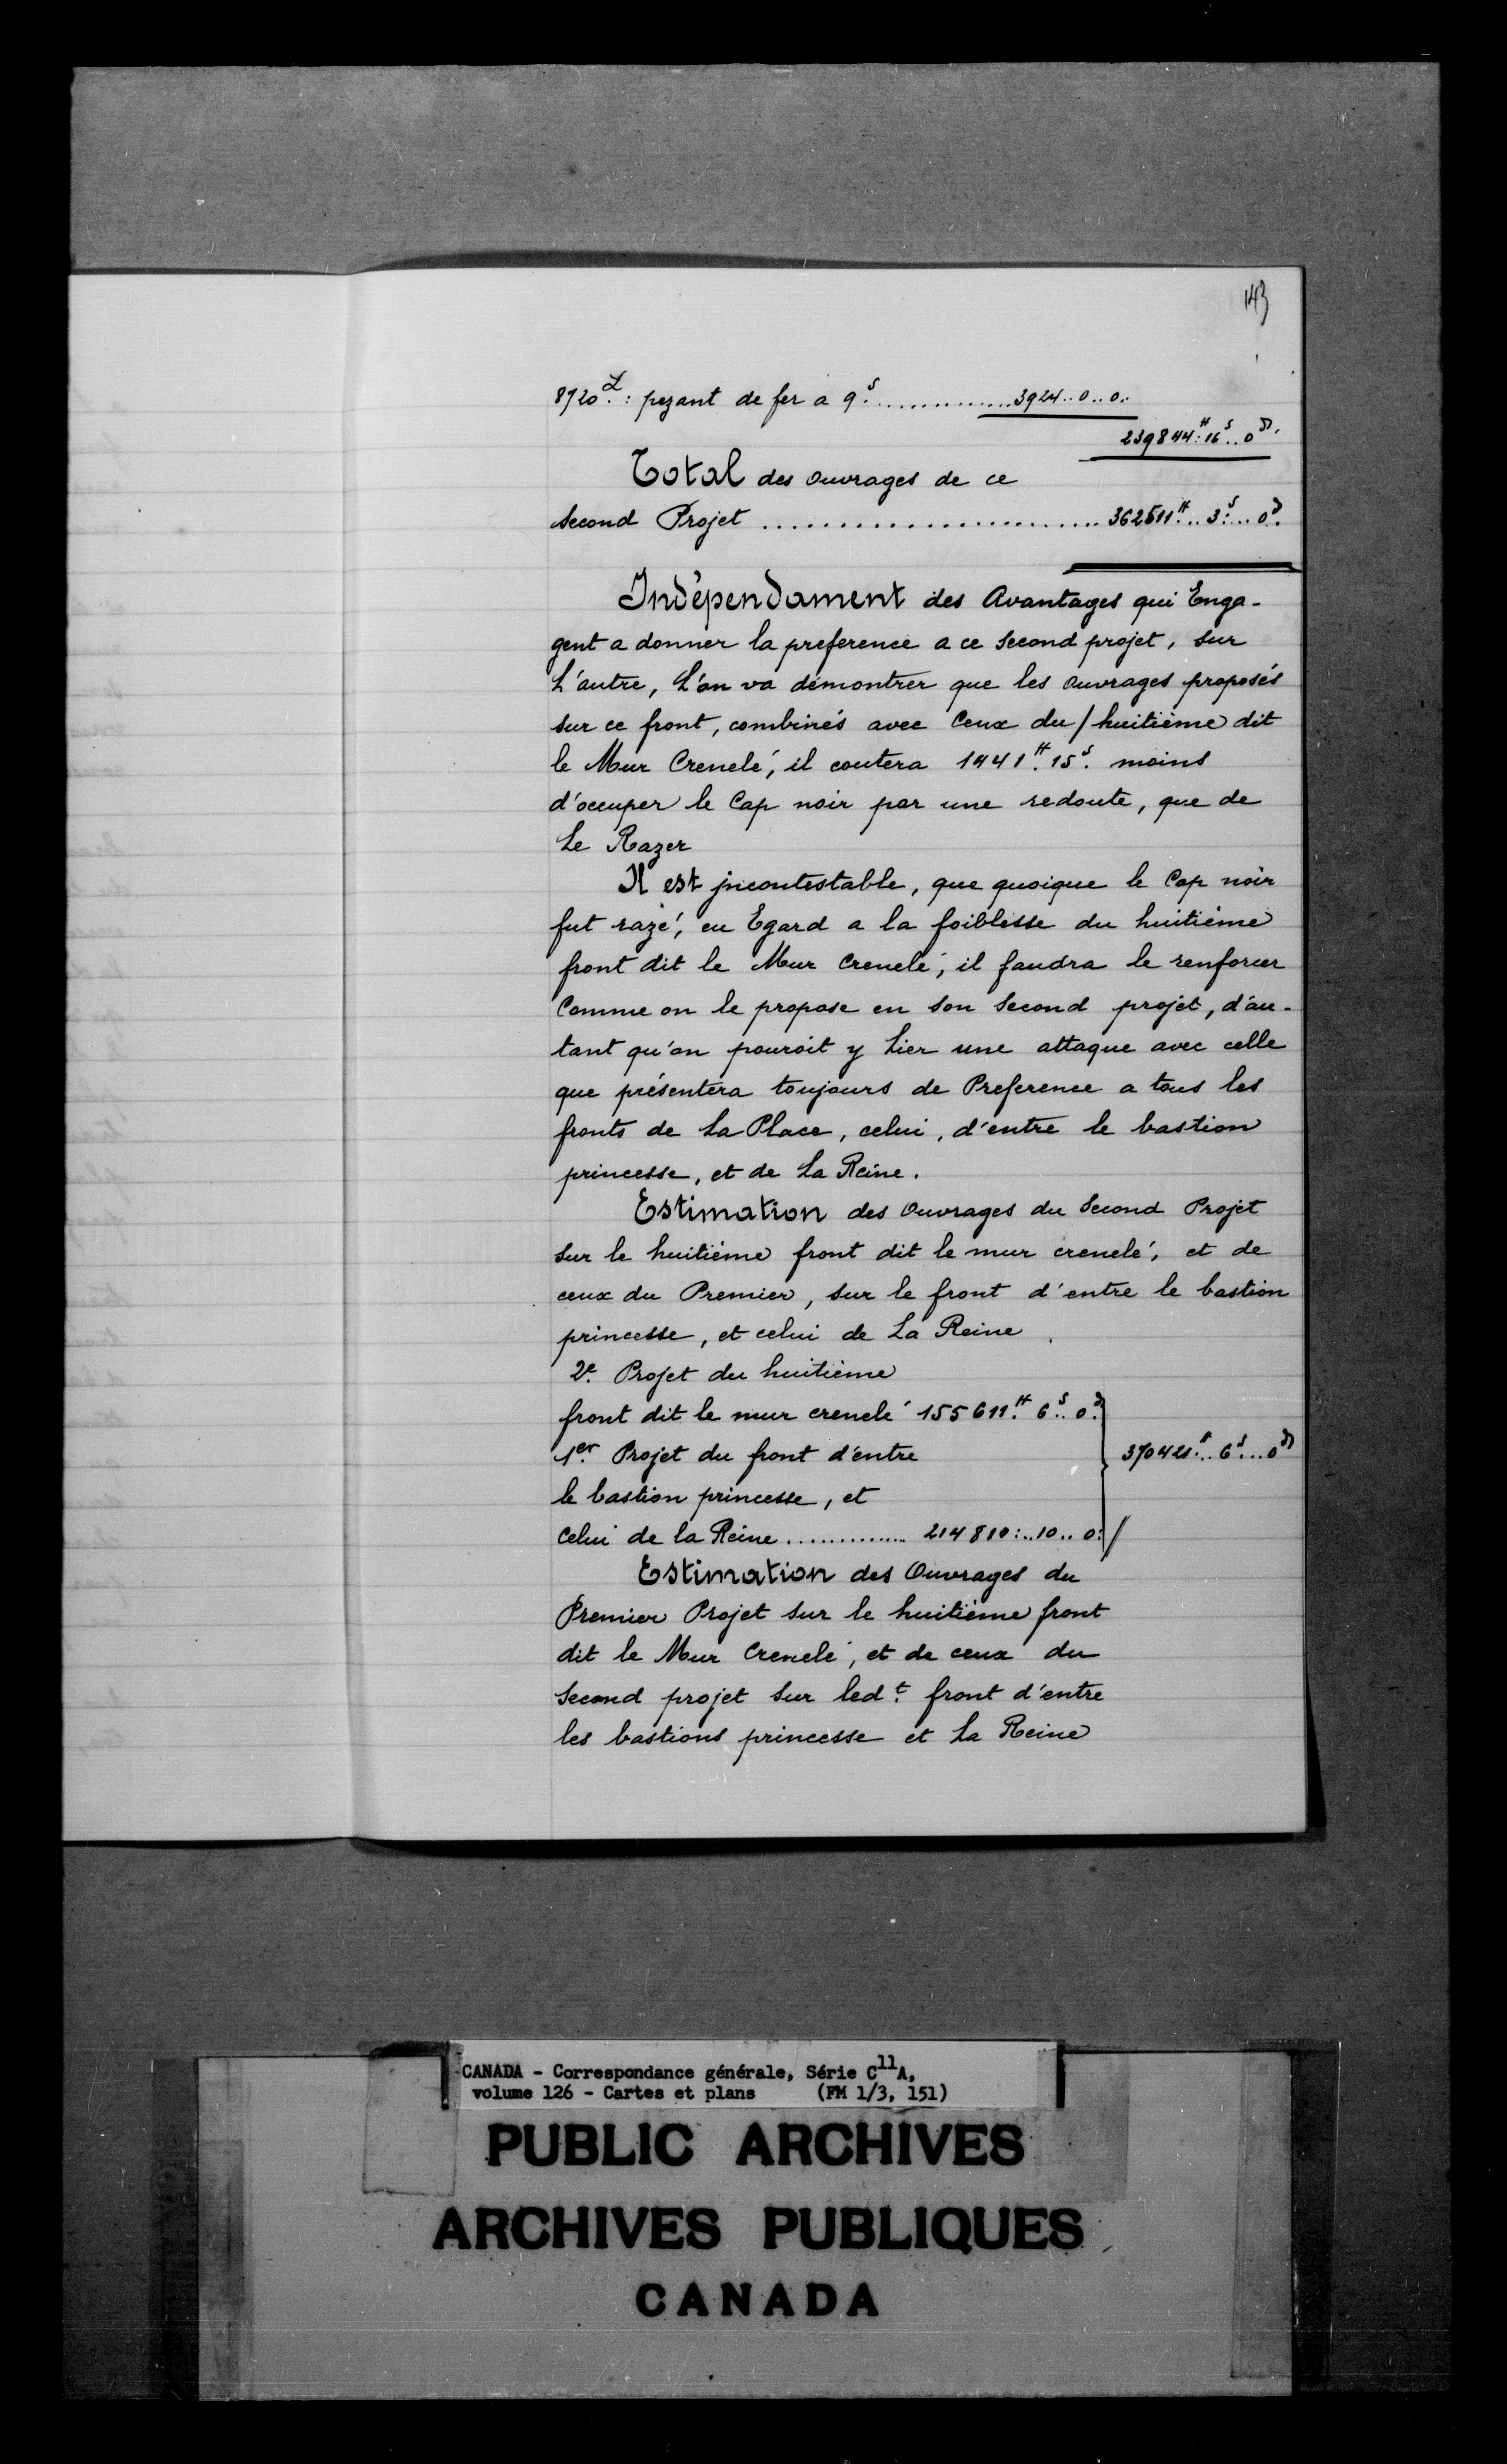 143
8720.L : pezant de fer a 9.s ............... 3924..0..0.
239844.# 16.s..0.D
Total des ouvrages de ce
second Projet ........................ 362511.#..3.s...0.D
Indépendament des Avantages qui Enga-
gent a donner la preference a ce Second projet, sur
L'autre, L'on va démontrer que les ouvrages proposés
sur ce front, combinés avec Ceux du/huitième dit
le Mur Crenelé, il coutera 1441.# 15.s moins
d'occuper le Cap noir par une redoute, que de
Le Razer
Il est jncontestable, que quoique le Cap noir
fut razé, eu Egard a la foiblesse du huitième
front dit le Mur Crenelé, il faudra le renforcer
Comme on le propose en son Second projet, d'au-
tant qu'on pouroit y Lier une attaque avec celle
que présentera toujours de Preference a tous les
fronts de La Place, celui, d'entre le bastion
princesse, et de La Reine.
Estimation des Ouvrages du Second Projet
sur le huitième front dit le mur crenelé, et de
ceux du Premier, sur le front d'entre le bastion
princesse, et celui de La Reine
2e. Projet du huitième
front dit le mur crenelé 155611.# 6.s. 0.D
1er. Projet du front d'entre 370421.#..6.s...0.D
le bastion princesse, et
Celui de la Reine .............. 214810:..10..0. //
Estimation des Ouvrages du
Premier Projet sur le huitième front
dit le Mur Crenelé, et de ceux du
Second projet sur led.t front d'entre
les bastions princesse et La Reine
CANADA - Correspondance générale, Série C11A,
volume 126 - Cartes et plans (FM 1/3, 151)
PUBLIC ARCHIVES
ARCHIVES PUBLIQUES
CANADA